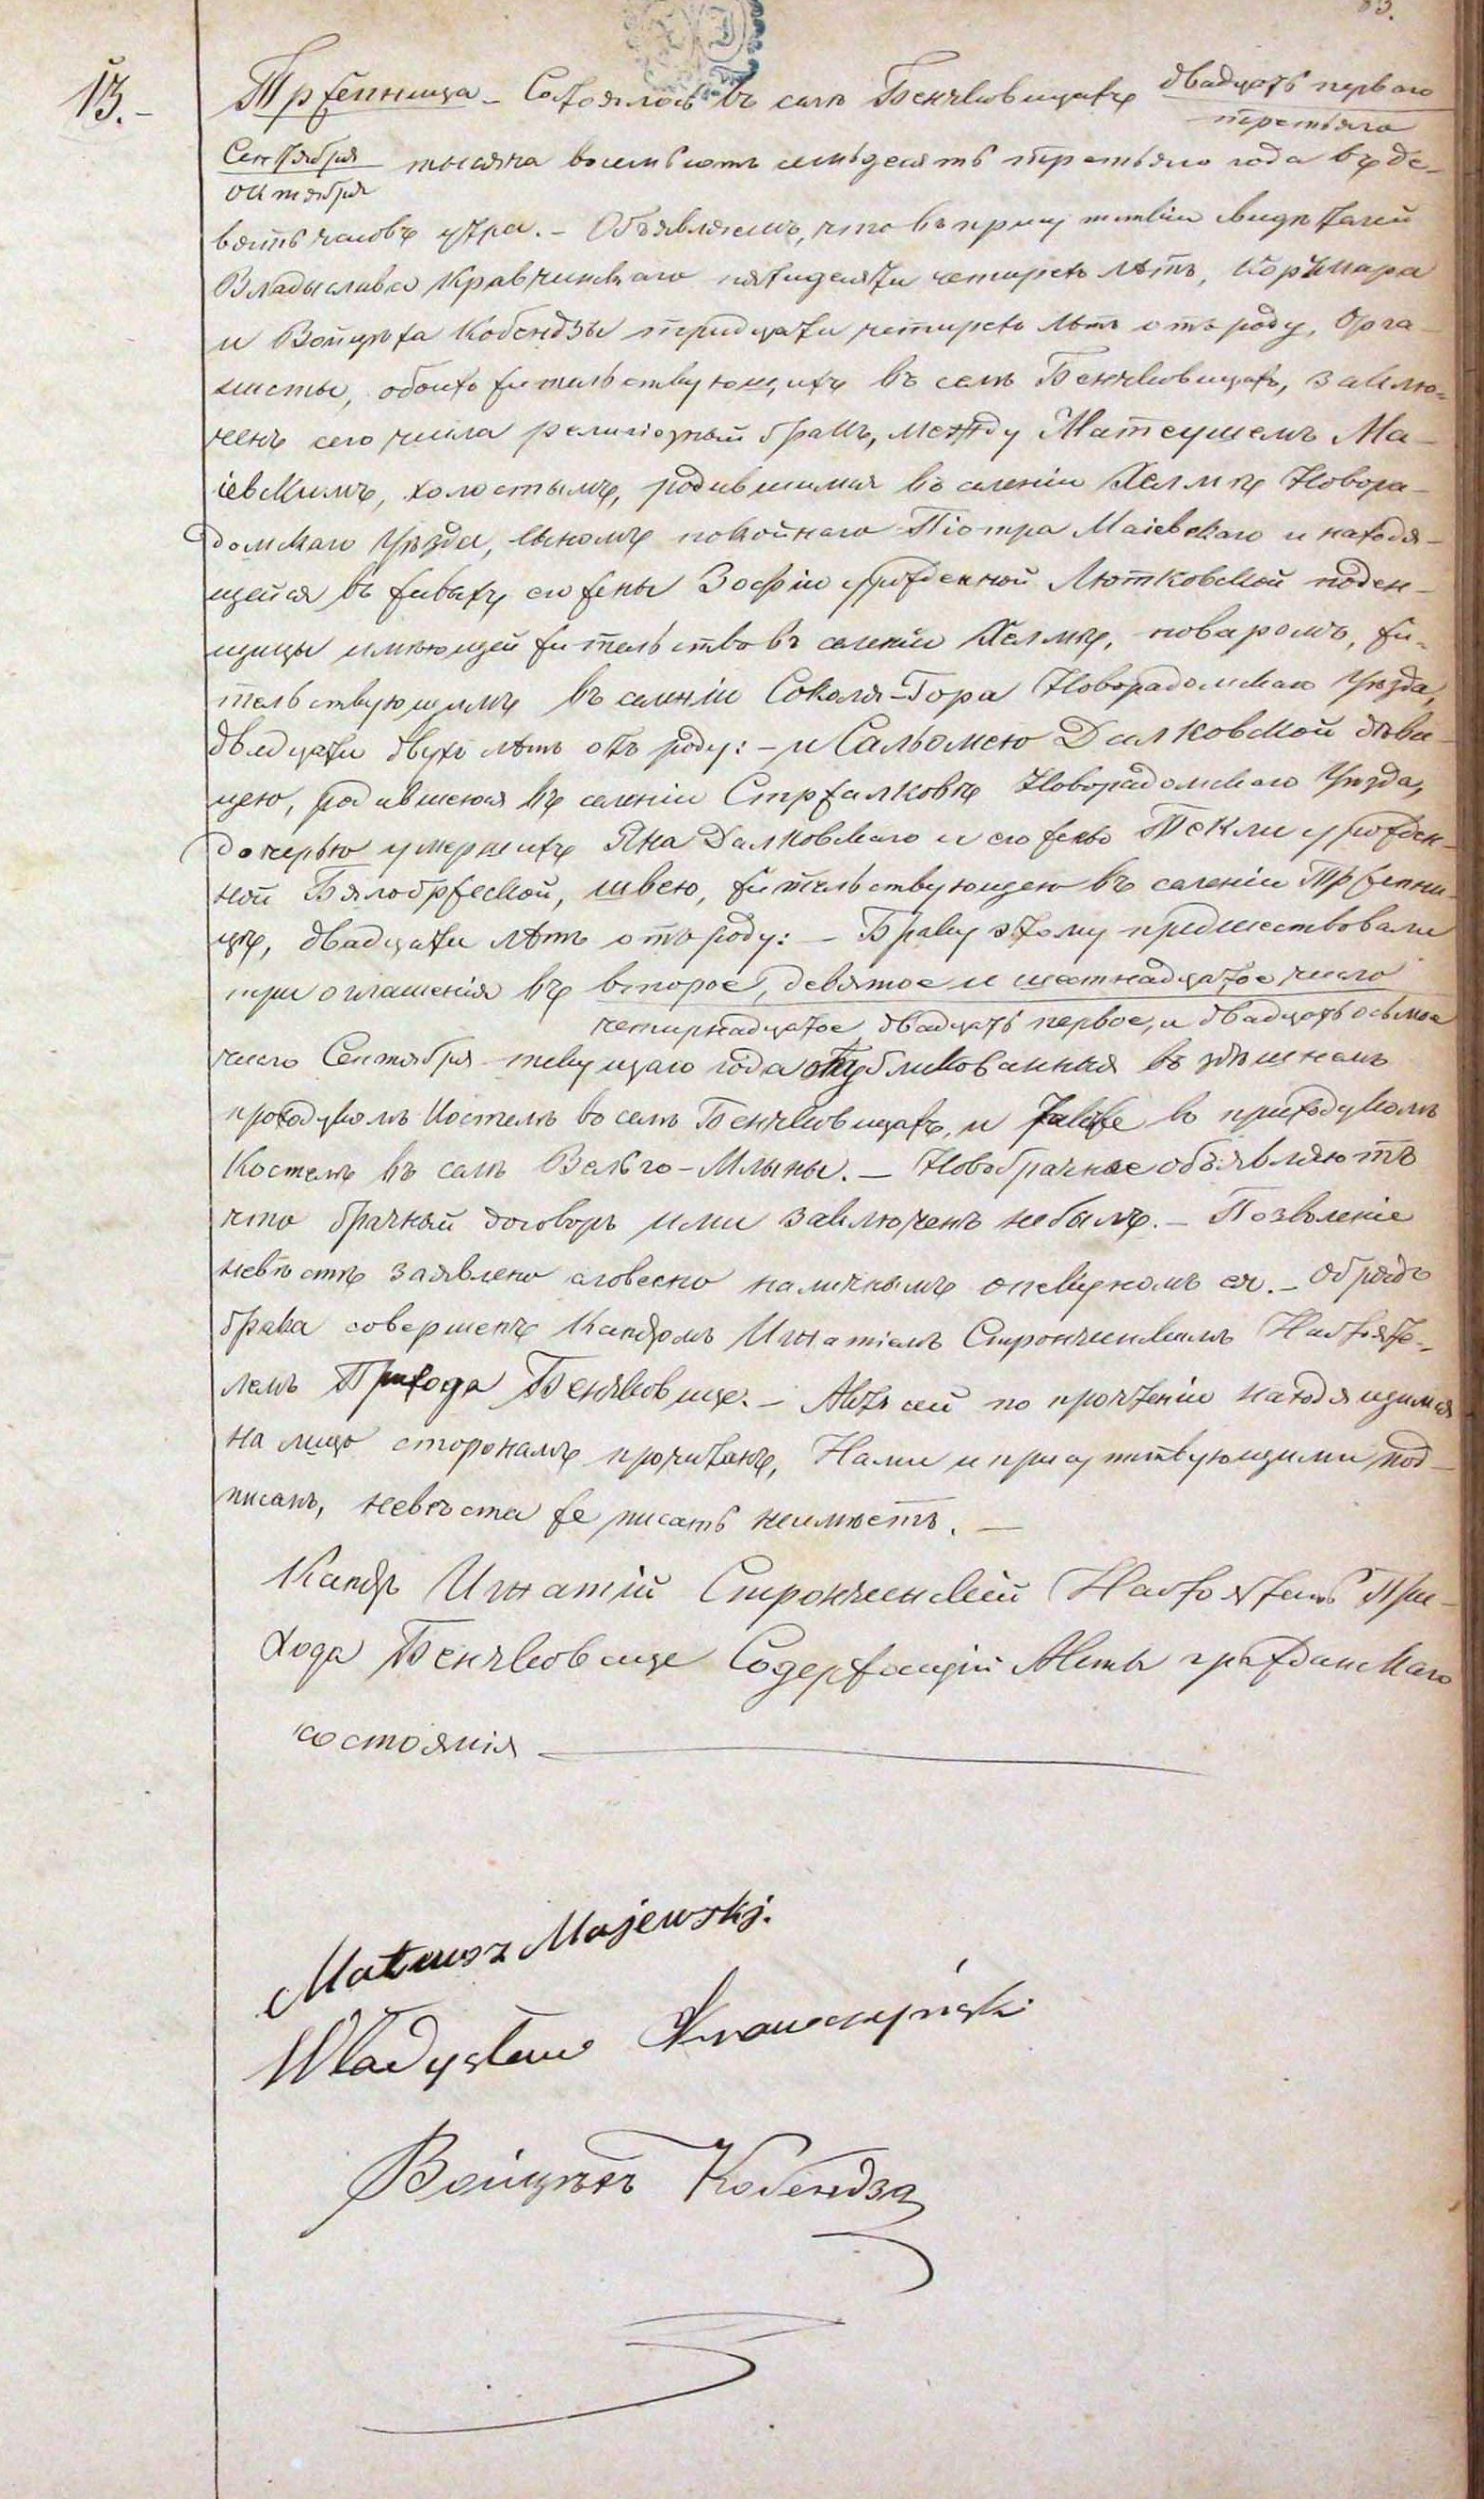 13.-
Тржепница - Состоялось въ селѣ Бенчковицахъ двадцать перваго
третьяго
Сентября тысяча восемьсотъ семьдесятъ третьяго года въ де-
Октября
вять часовъ утра. - Объявляемъ, что въ присутствіи свидѣтелей
Владыслава Кравчинскаго пятидесяти четырехъ лѣтъ, Корчмара
и Войцѣха Кобендзы тридцати четырехъ лѣтъ отъ роду, Орга-
нисты, обоихъ жительствующихъ въ селѣ Бенчковицахъ, заклю-
ченъ сего числа религіозный бракъ, между Матеушемъ Ма-
іевскимъ, холостымъ, родившимся въ селеніи Хелмѣ Новора-
домскаго Уѣзда, сыномъ покойнаго Піотра Маіевскаго и находя-
щейся въ живыхъ его жены Зофіи урожденной Лютковской поден-
щицы имѣющей жительство въ селеніи Хелмѣ, поваромъ, жи-
тельствующимъ въ селеніи Соколя-Гора Новорадомскаго Уѣзда,
двадцати двухъ лѣтъ отъ роду: - и Сальомею Далковской дѣви-
цею, родившеюся въ селеніи Стржалковѣ Новорадомскаго Уѣзда,
дочерью умершихъ Яна Далковскаго и его жены Текли урожден-
ной Бялобржеской, швею, жительствующею въ селеніи Тржепни-
цѣ, двадцати лѣтъ отъ роду: - Браку этому предшествовали
три оглашенія въ второе, девятое и шестнадцатое число
четырнадцатое двадцать первое, и двадцать осьмое
число Сентября текущаго года опубликованныя въ здѣшнемъ
приходскомъ Костелѣ во селѣ Бенчковицахъ, и также въ приходскомъ
Костелѣ въ селѣ Вельго-Млыны. - Новобрачные объявляютъ
что брачный договоръ ими заключенъ небылъ. - Позволеніе
невѣстѣ заявлено словесно наличнымъ опекуномъ ея. - Обрядъ
брака совершенъ Ксендзомъ Игнатіемъ Стрончинскимъ Настояте-
лемъ Прихода Бенчковице. - Актъ сей по прочтеніи находящимся
на лицо сторонамъ прочитанъ, Нами и присутствующими под-
писанъ, невѣста же писать неумѣетъ. -
Ксендзъ Игнатій Стрончинскій Настоятель При-
хода Бенчковице Содержащій Акты гражданскаго
состоянія
Mateusz Majewski.
Władysław Krawczyński
Войцѣхъ Кобендза